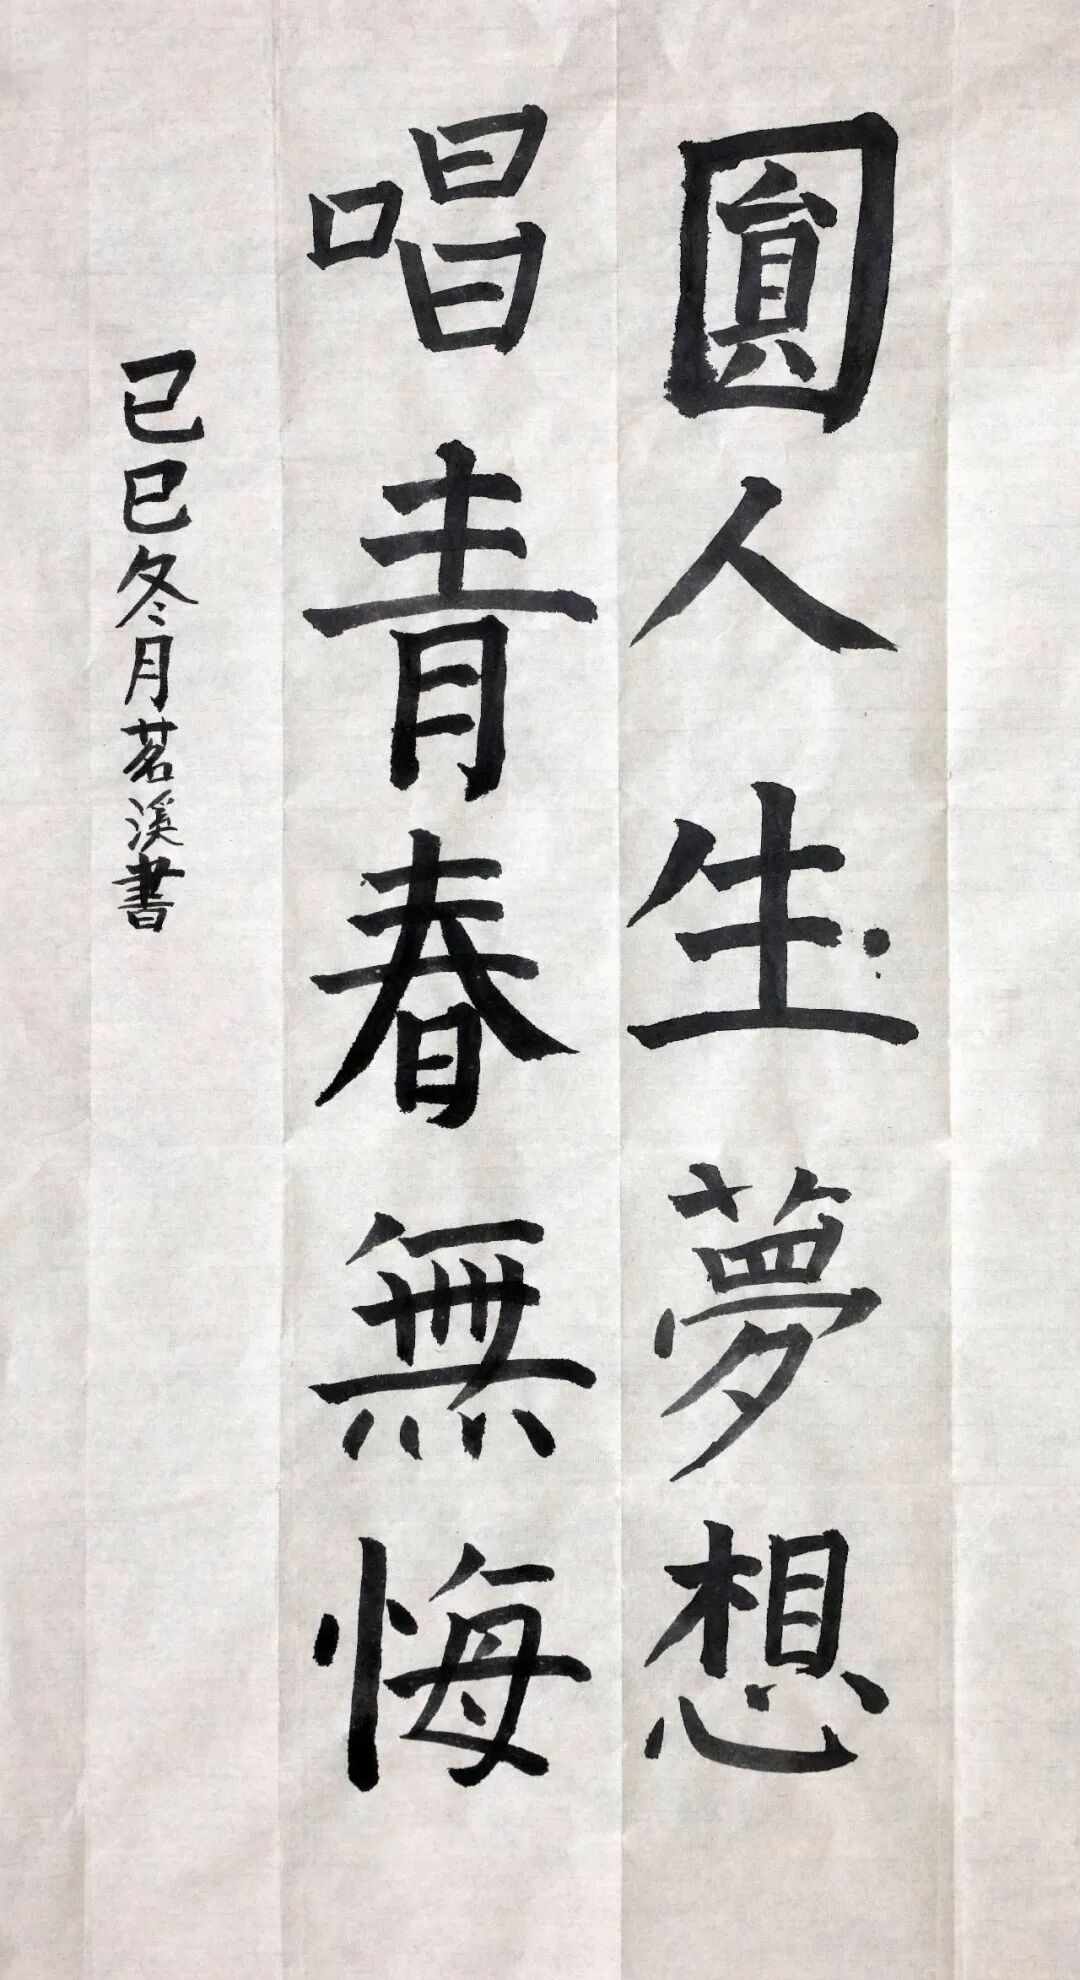 圓人生夢想
唱青春無悔
己巳冬月茗溪書